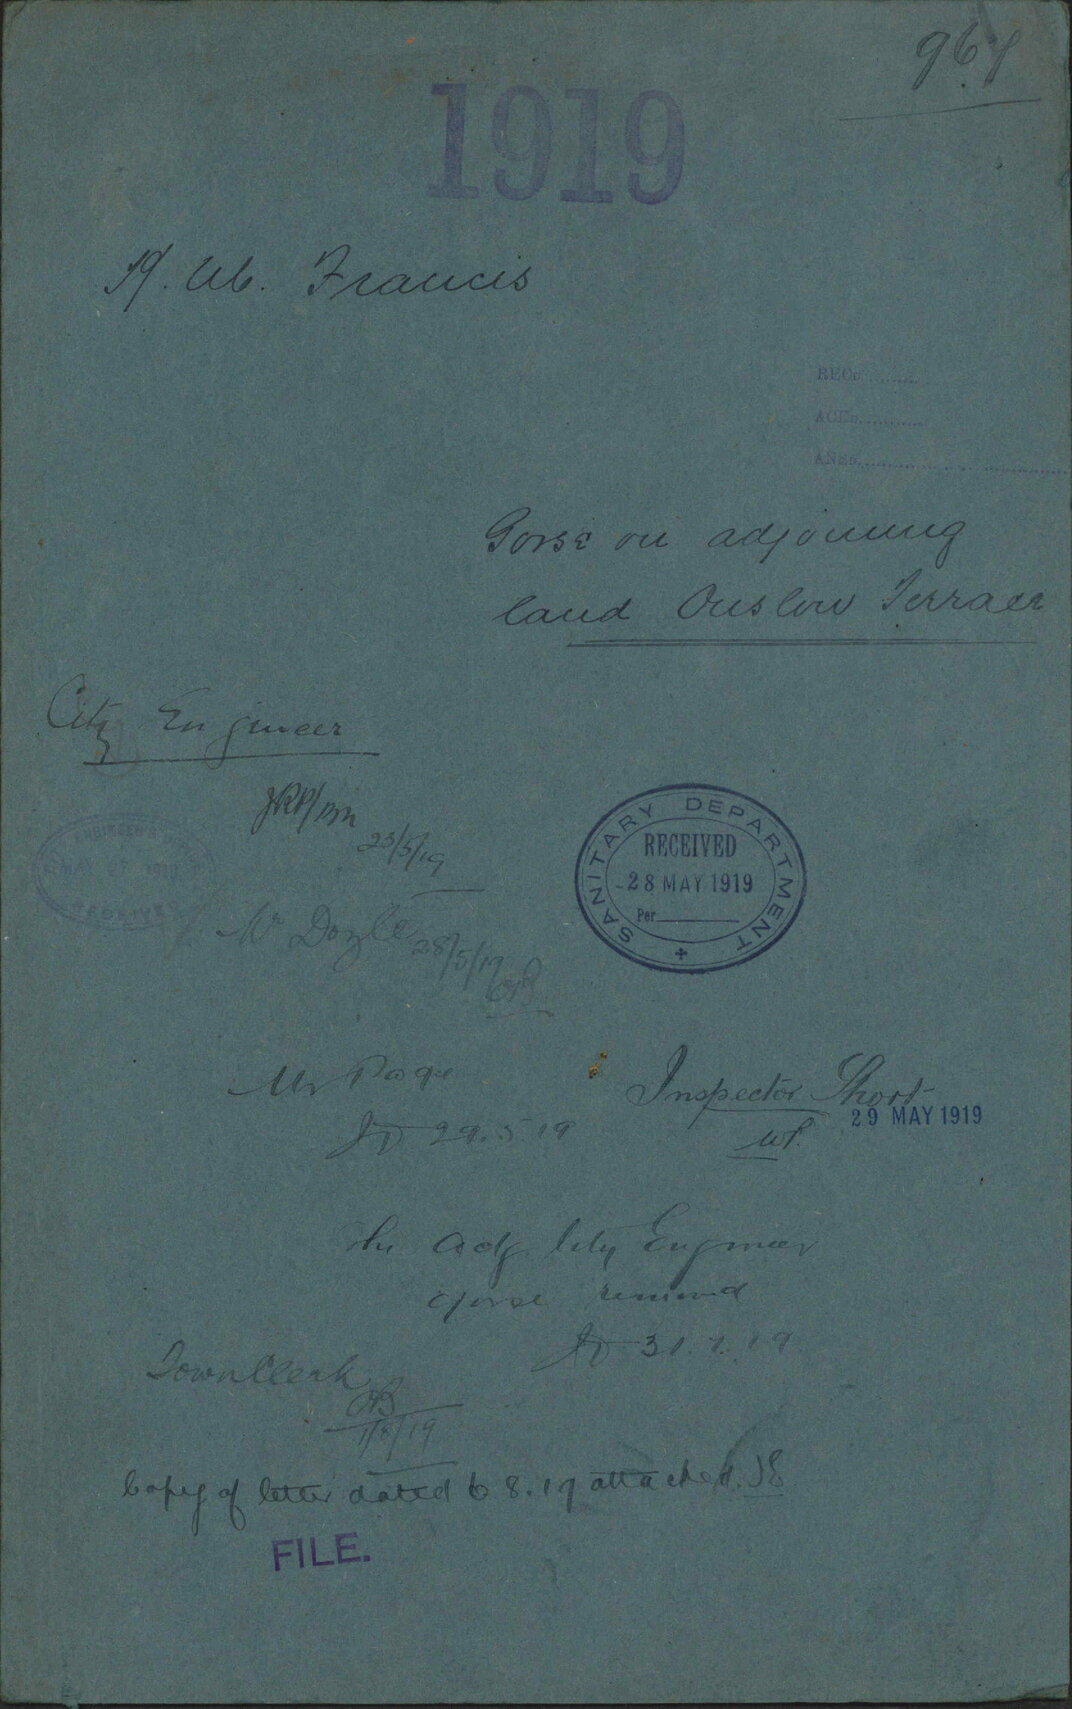 1919
H. W. Francis
RECD
ACKD
ANSD
Gorse on adjoining
land Onslow Terrace
City Engineer
JRP/BM
23/5/19
SANITARY DEPARTMENT
RECEIVED
28 MAY 1919
Per
ENGINEER'S
RECEIVED
Mr Doyle
28/5/19
Mr Page
JD 29.5.19
Inspector Short
29 MAY 1919
The Actg City Engineer
Gorse removed
JD 31.7.19
Town Clerk
1/8/19
Copy of letter dated 6.8.19 attached. JE
FILE.